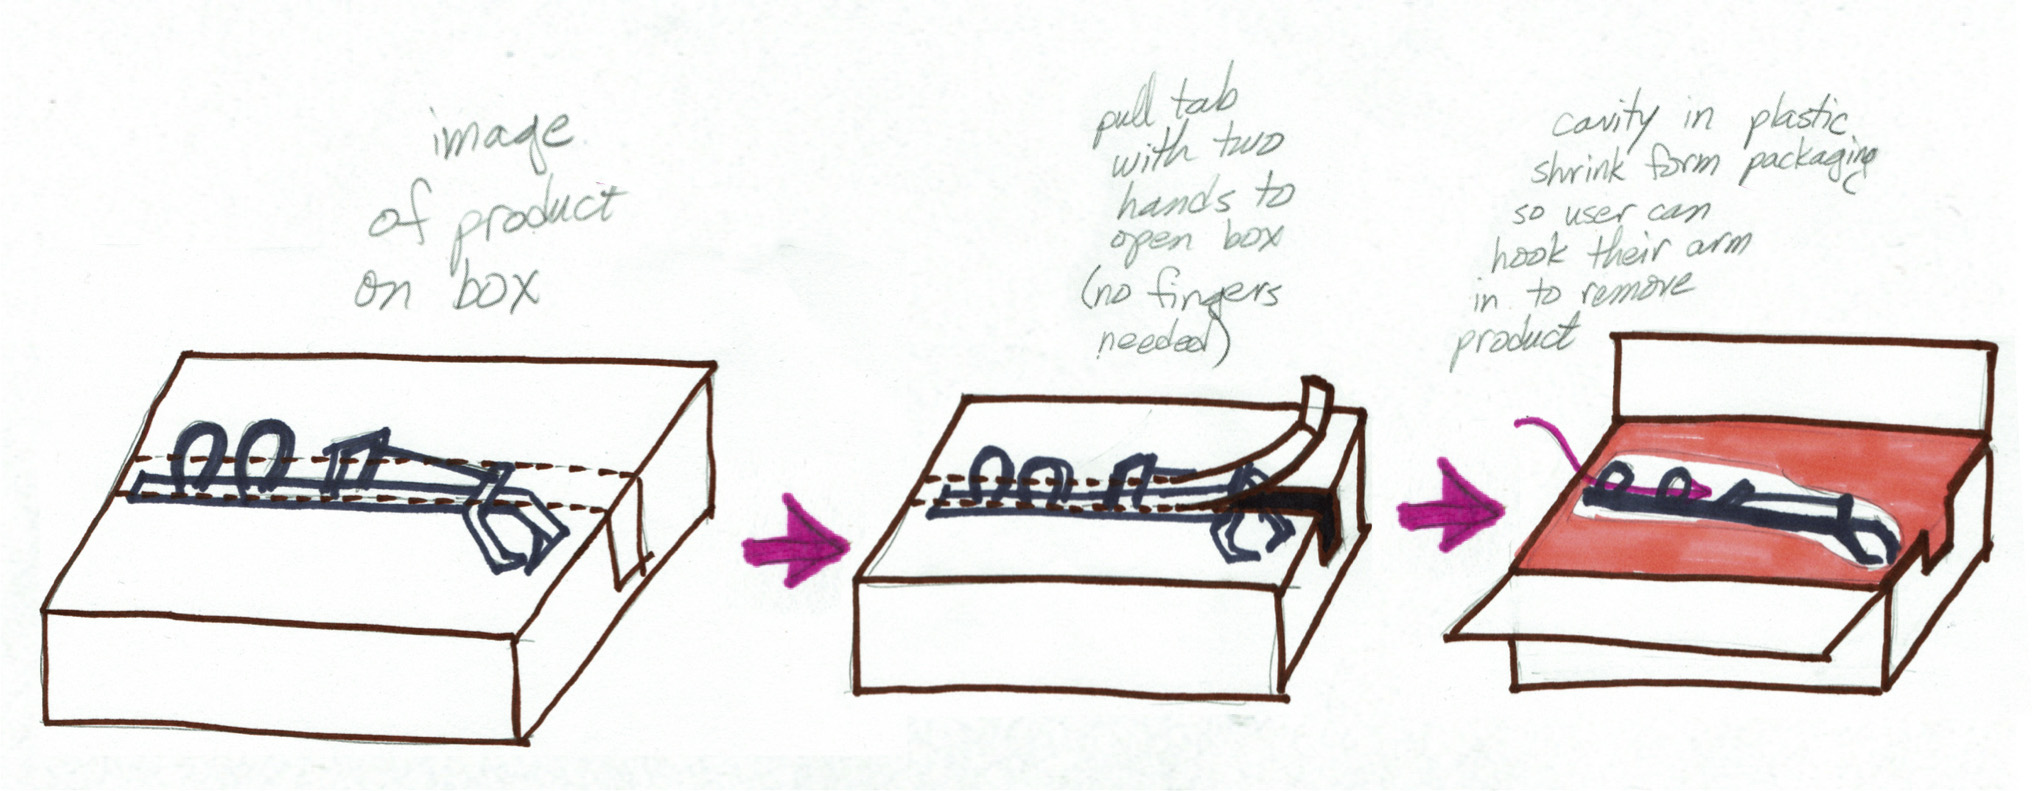 image
of product
on box
pull tab
with two
hands to
open box
(no fingers
needed)
cavity in plastic
shrink form packaging
so user can
hook their arm
in to remove
product